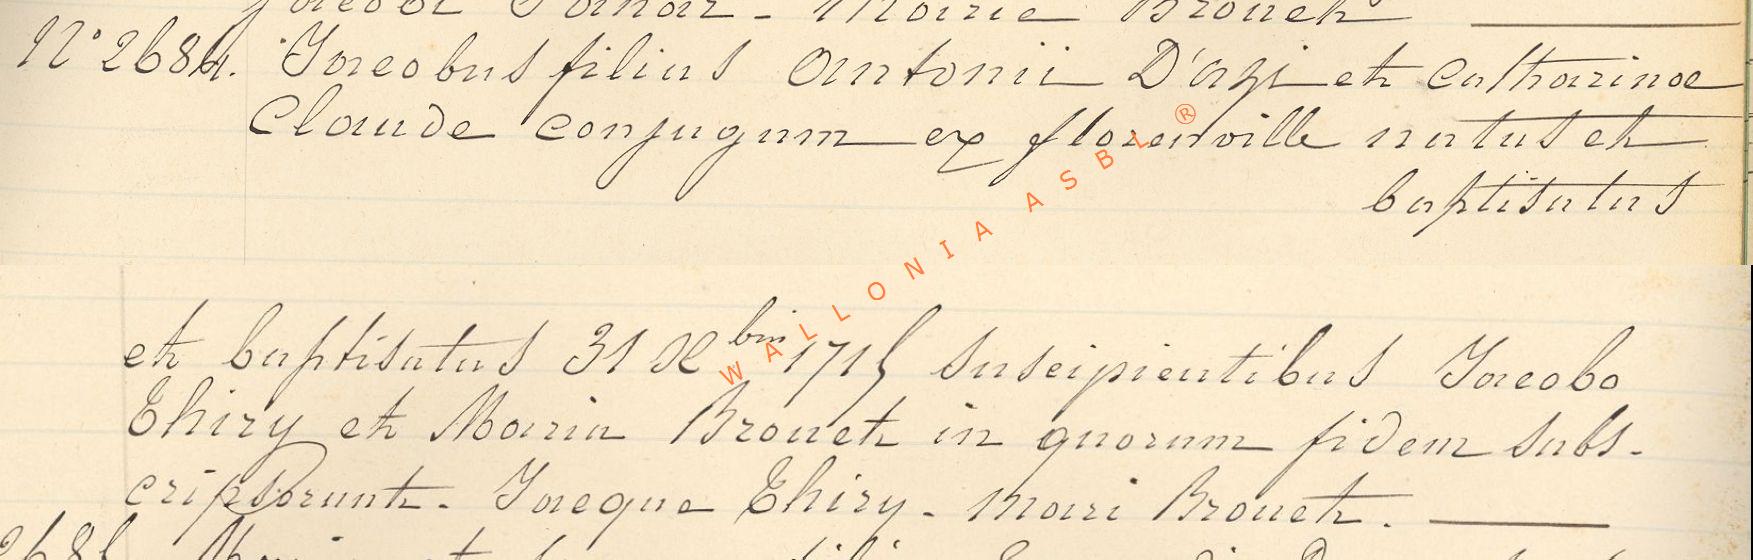 Jacobi Mairie Brouek
N° 2684. Jacobus filius Antonii D'agi et Catharinae
Claude conjugum ex florenville natus et
baptisatus
et baptisatus 31 Xbris 1715 suscipientibus Jacobo
Thiry et Maria Brouet in quorum fidem subs-
cripserunt. Jacque Thiry. Mari Brouet.
WALLONIA ASBL ®